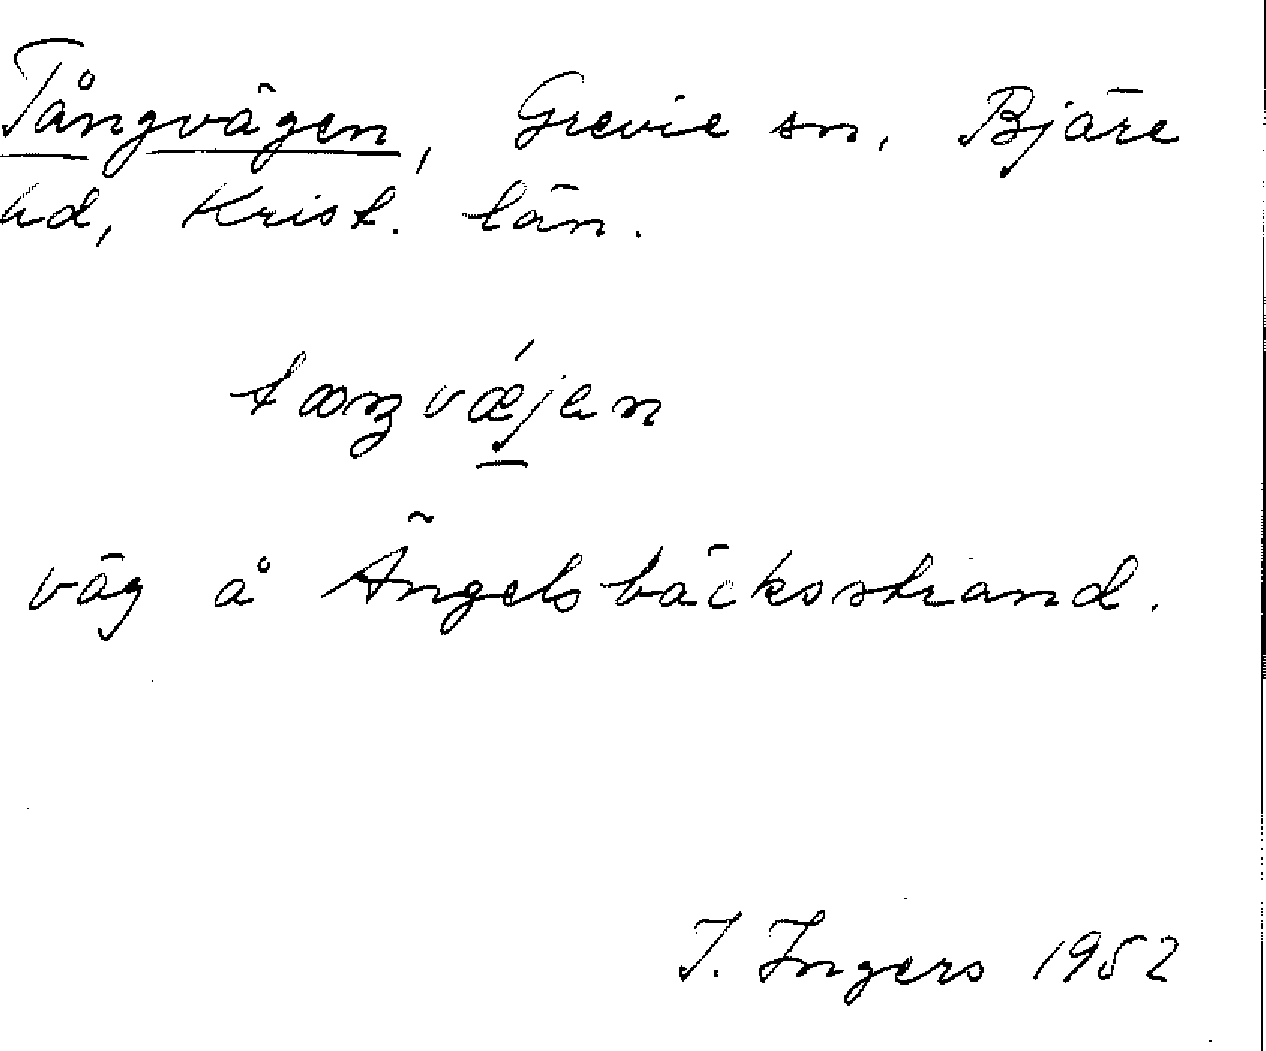 Tångvägen, Grevie sn, Bjäre
hd, Krist. län.
taŋvǽjen
väg å Ängelsbäcksstrand.
I. Ingers 1952